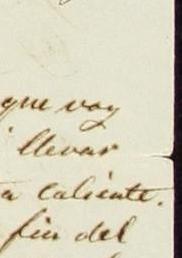 que voy
llevar
a caliente.
fin del